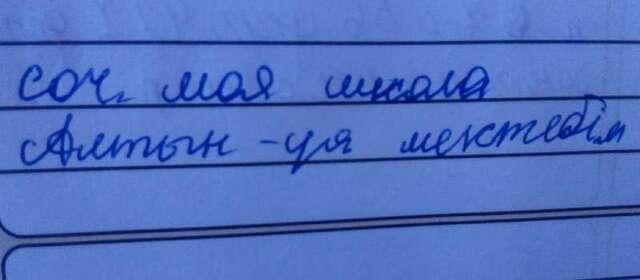 соч. моя школа
Алтын-ұя мектебім